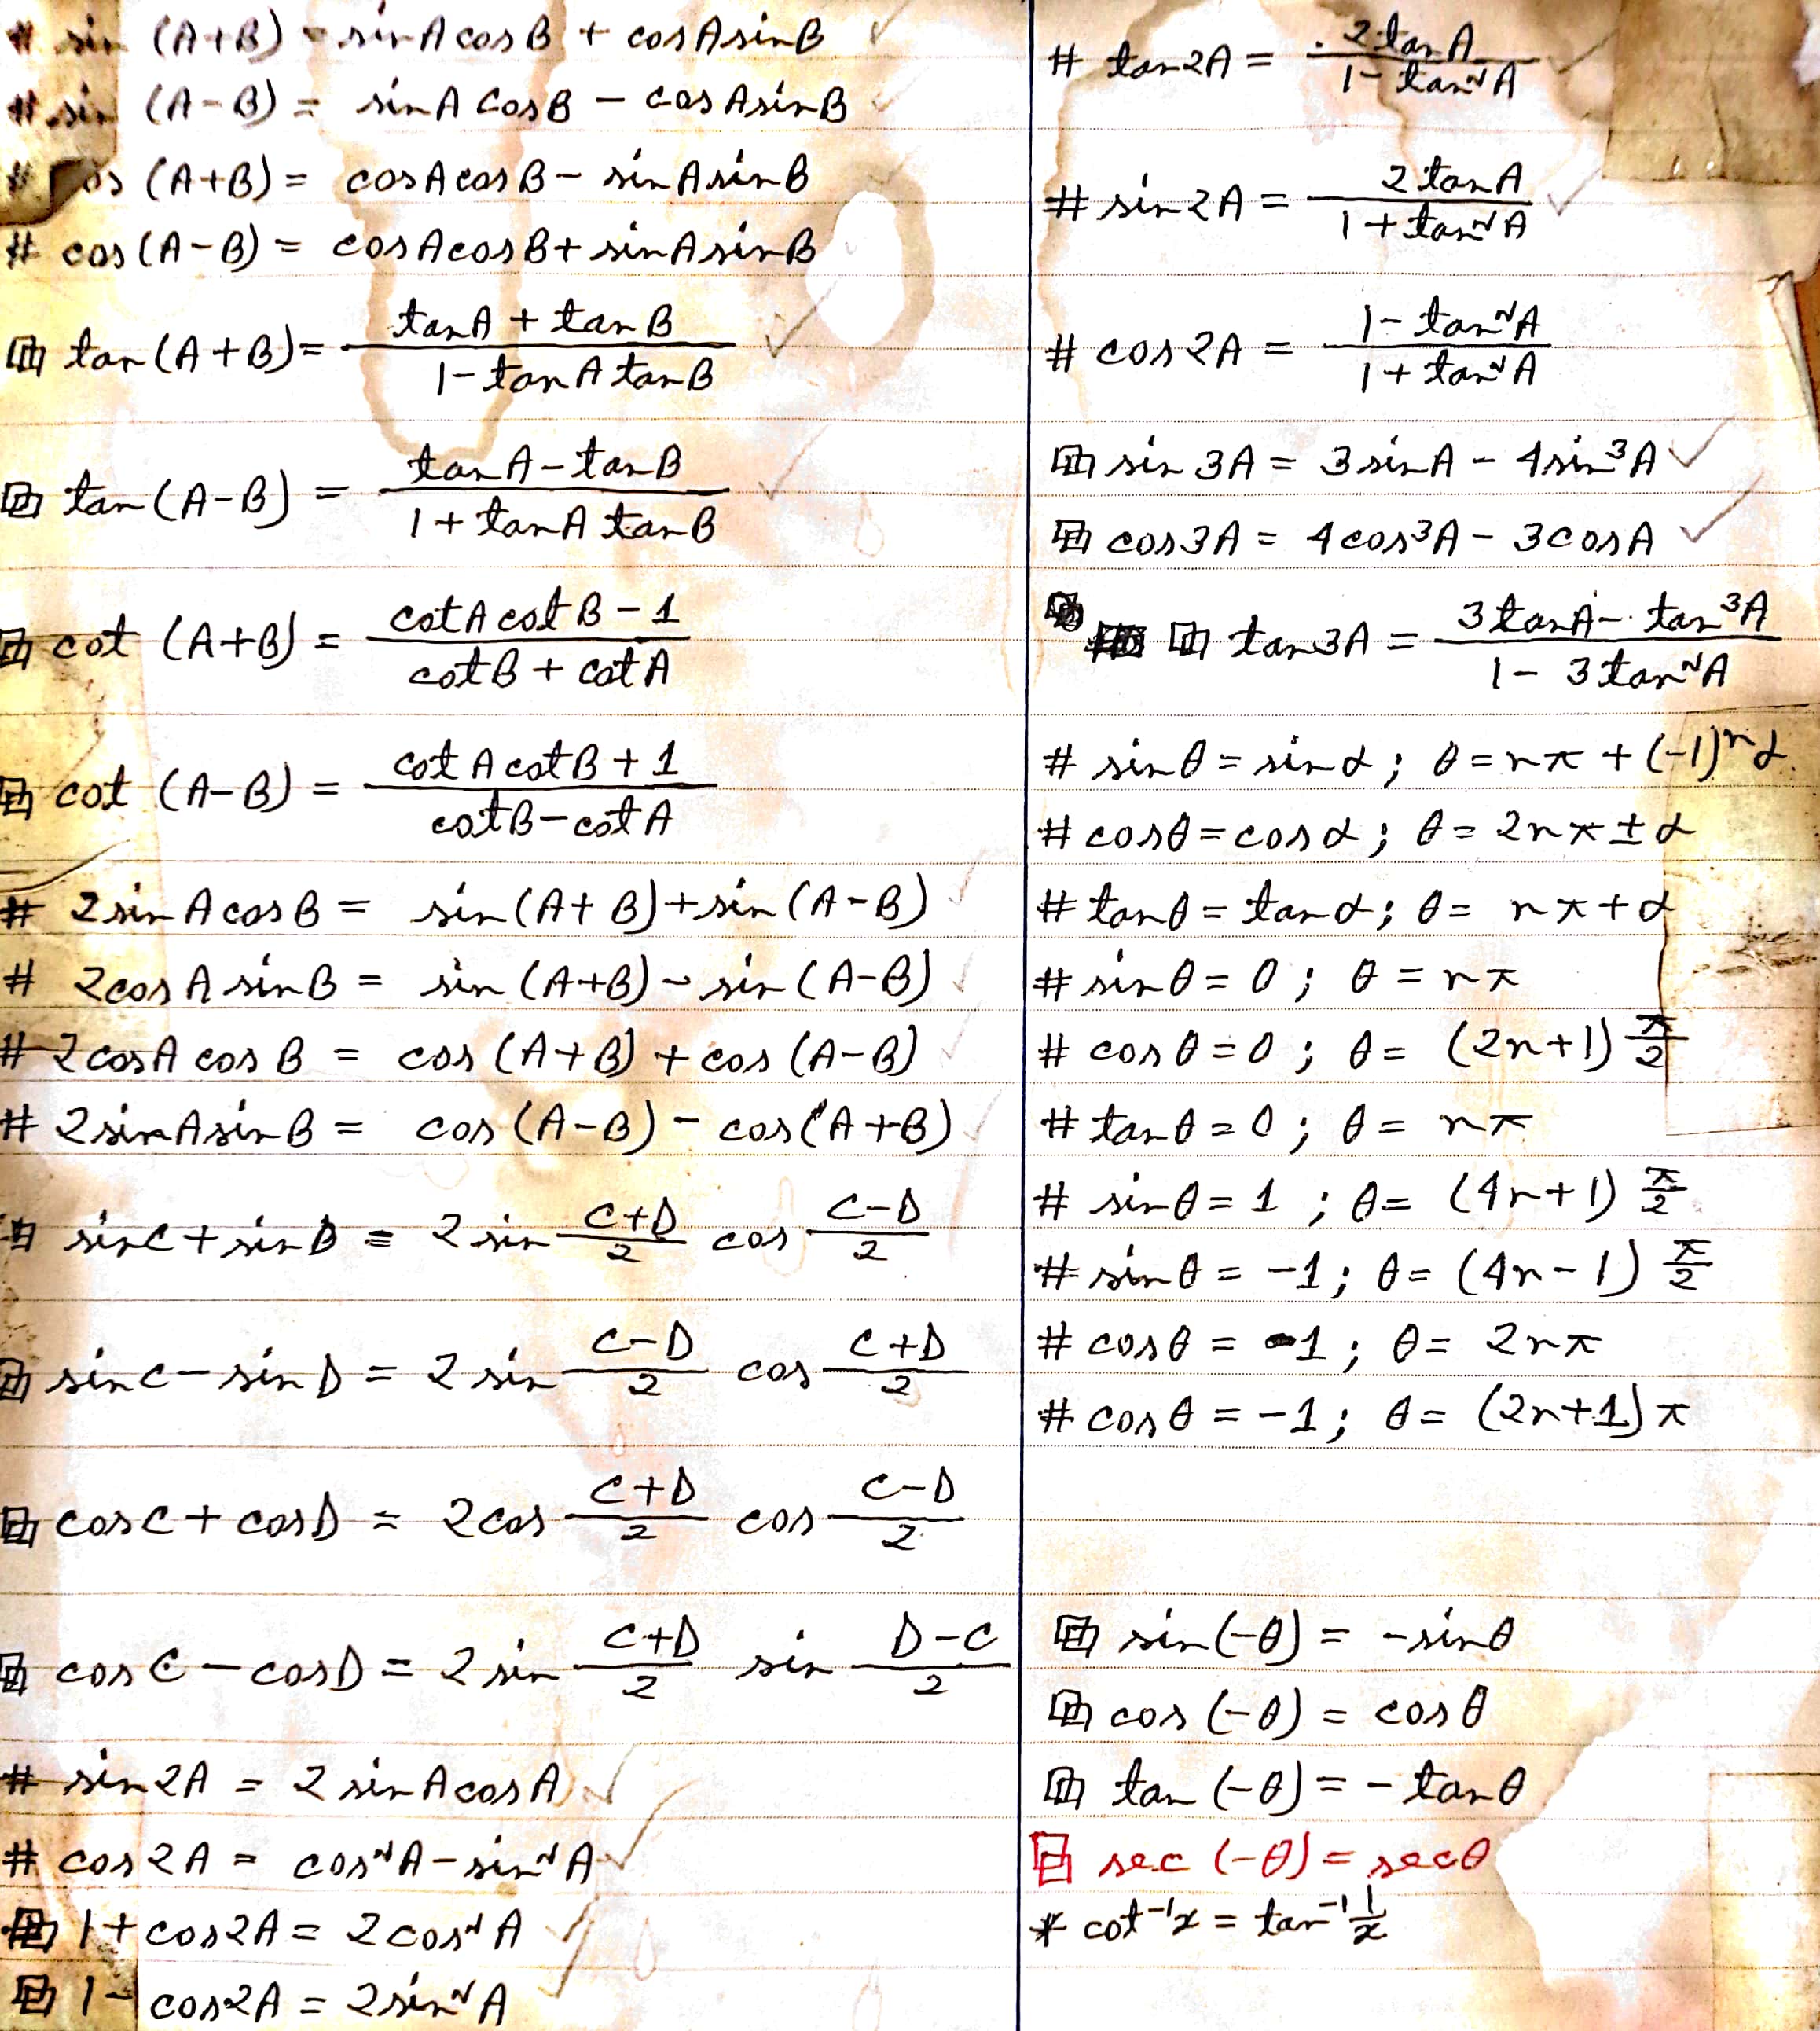 # sin (A+B) = sinA cosB + cosAsinB
# sin (A-B) = sinA CosB - cosAsinB
# cos (A+B) = cosAcosB - sinAsinB
# cos (A-B) = cosAcosB + sinAsinB
tan (A+B) = (tanA + tanB) / (1 - tanA tanB)
tan (A-B) = (tanA - tanB) / (1 + tanA tanB)
cot (A+B) = (cotA cotB - 1) / (cotB + cotA)
cot (A-B) = (cotA cotB + 1) / (cotB - cotA)
# 2sinAcosB = sin(A+B) + sin(A-B)
# 2cosAsinB = sin(A+B) - sin(A-B)
# 2cosA cosB = cos(A+B) + cos(A-B)
# 2sinAsinB = cos(A-B) - cos(A+B)
sinC + sinD = 2 sin (C+D)/2 cos (C-D)/2
sinC - sinD = 2 sin (C-D)/2 cos (C+D)/2
cosC + cosD = 2cos (C+D)/2 cos (C-D)/2
cosC - cosD = 2 sin (C+D)/2 sin (D-C)/2
# sin2A = 2 sinAcosA
# cos2A = cos²A - sin²A
1 + cos2A = 2cos²A
1 - cos2A = 2sin²A
# tan2A = 2tanA / (1 - tan²A)
# sin2A = 2tanA / (1 + tan²A)
# cos2A = (1 - tan²A) / (1 + tan²A)
sin3A = 3sinA - 4sin³A
cos3A = 4cos³A - 3cosA
tan3A = (3tanA - tan³A) / (1 - 3tan²A)
# sinθ = sinα; θ = nπ + (-1)ⁿα
# cosθ = cosα; θ = 2nπ ± α
# tanθ = tanα; θ = nπ + α
# sinθ = 0; θ = nπ
# cosθ = 0; θ = (2n+1) π/2
# tanθ = 0; θ = nπ
# sinθ = 1; θ = (4n+1) π/2
# sinθ = -1; θ = (4n-1) π/2
# cosθ = 1; θ = 2nπ
# cosθ = -1; θ = (2n+1)π
sin(-θ) = -sinθ
cos(-θ) = cosθ
tan(-θ) = -tanθ
sec(-θ) = secθ
* cot⁻¹x = tan⁻¹ 1/x